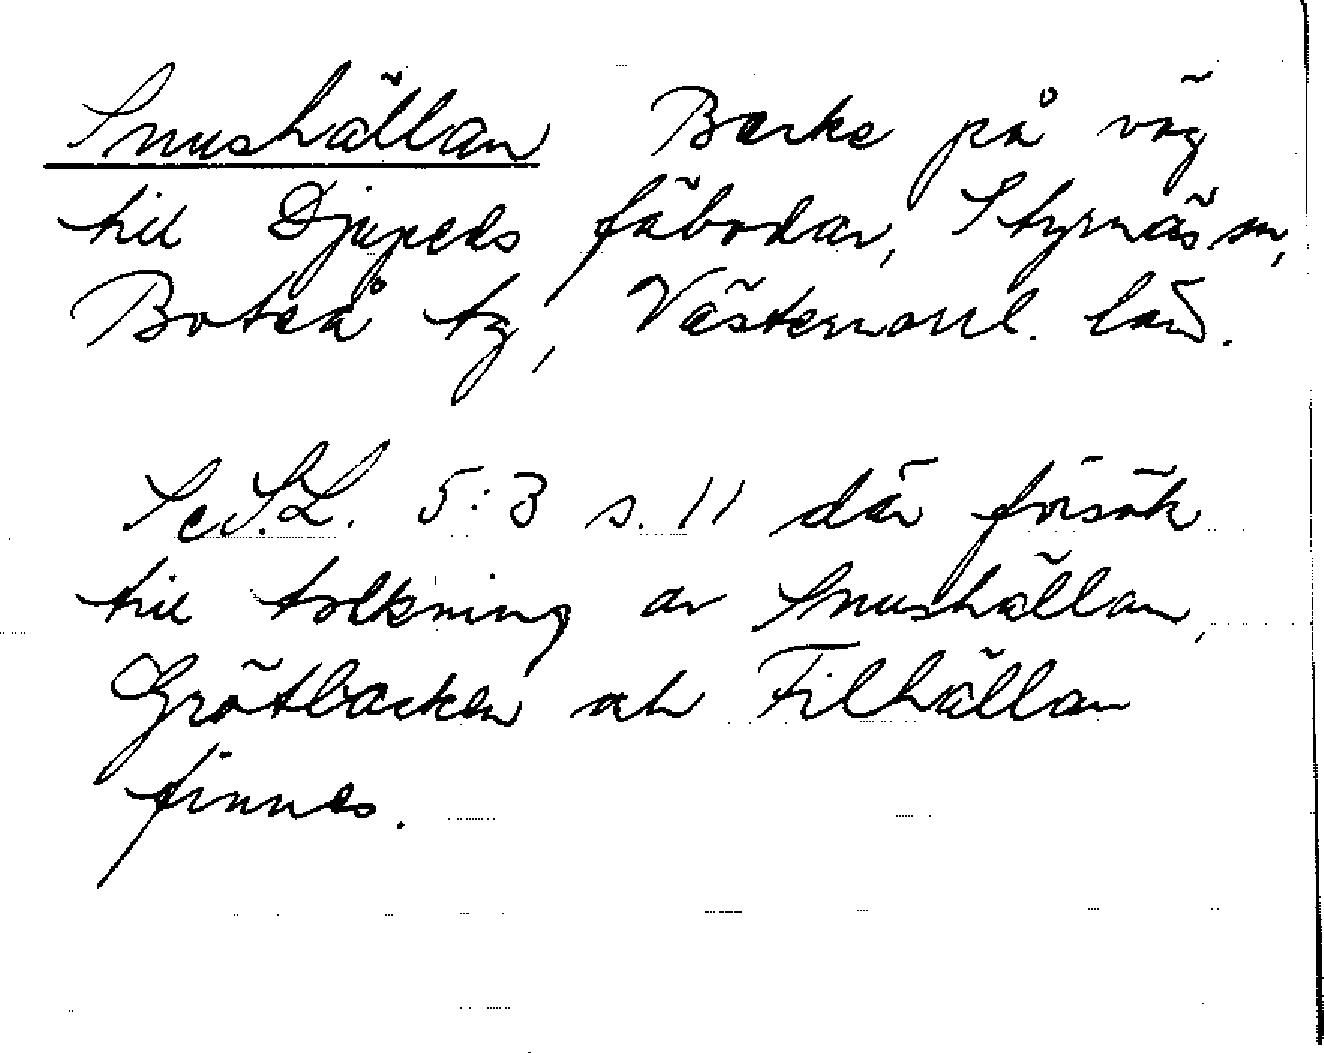 Snushällan Backe på väg
till Djupeds fäbodar, Styrnäs sn,
Boteå tg, Västernorrl. län.
Se S.L. 5:3 s. 11 där försök
till tolkning av Snushällan,
Grötbacken och Filhällan
finnes.